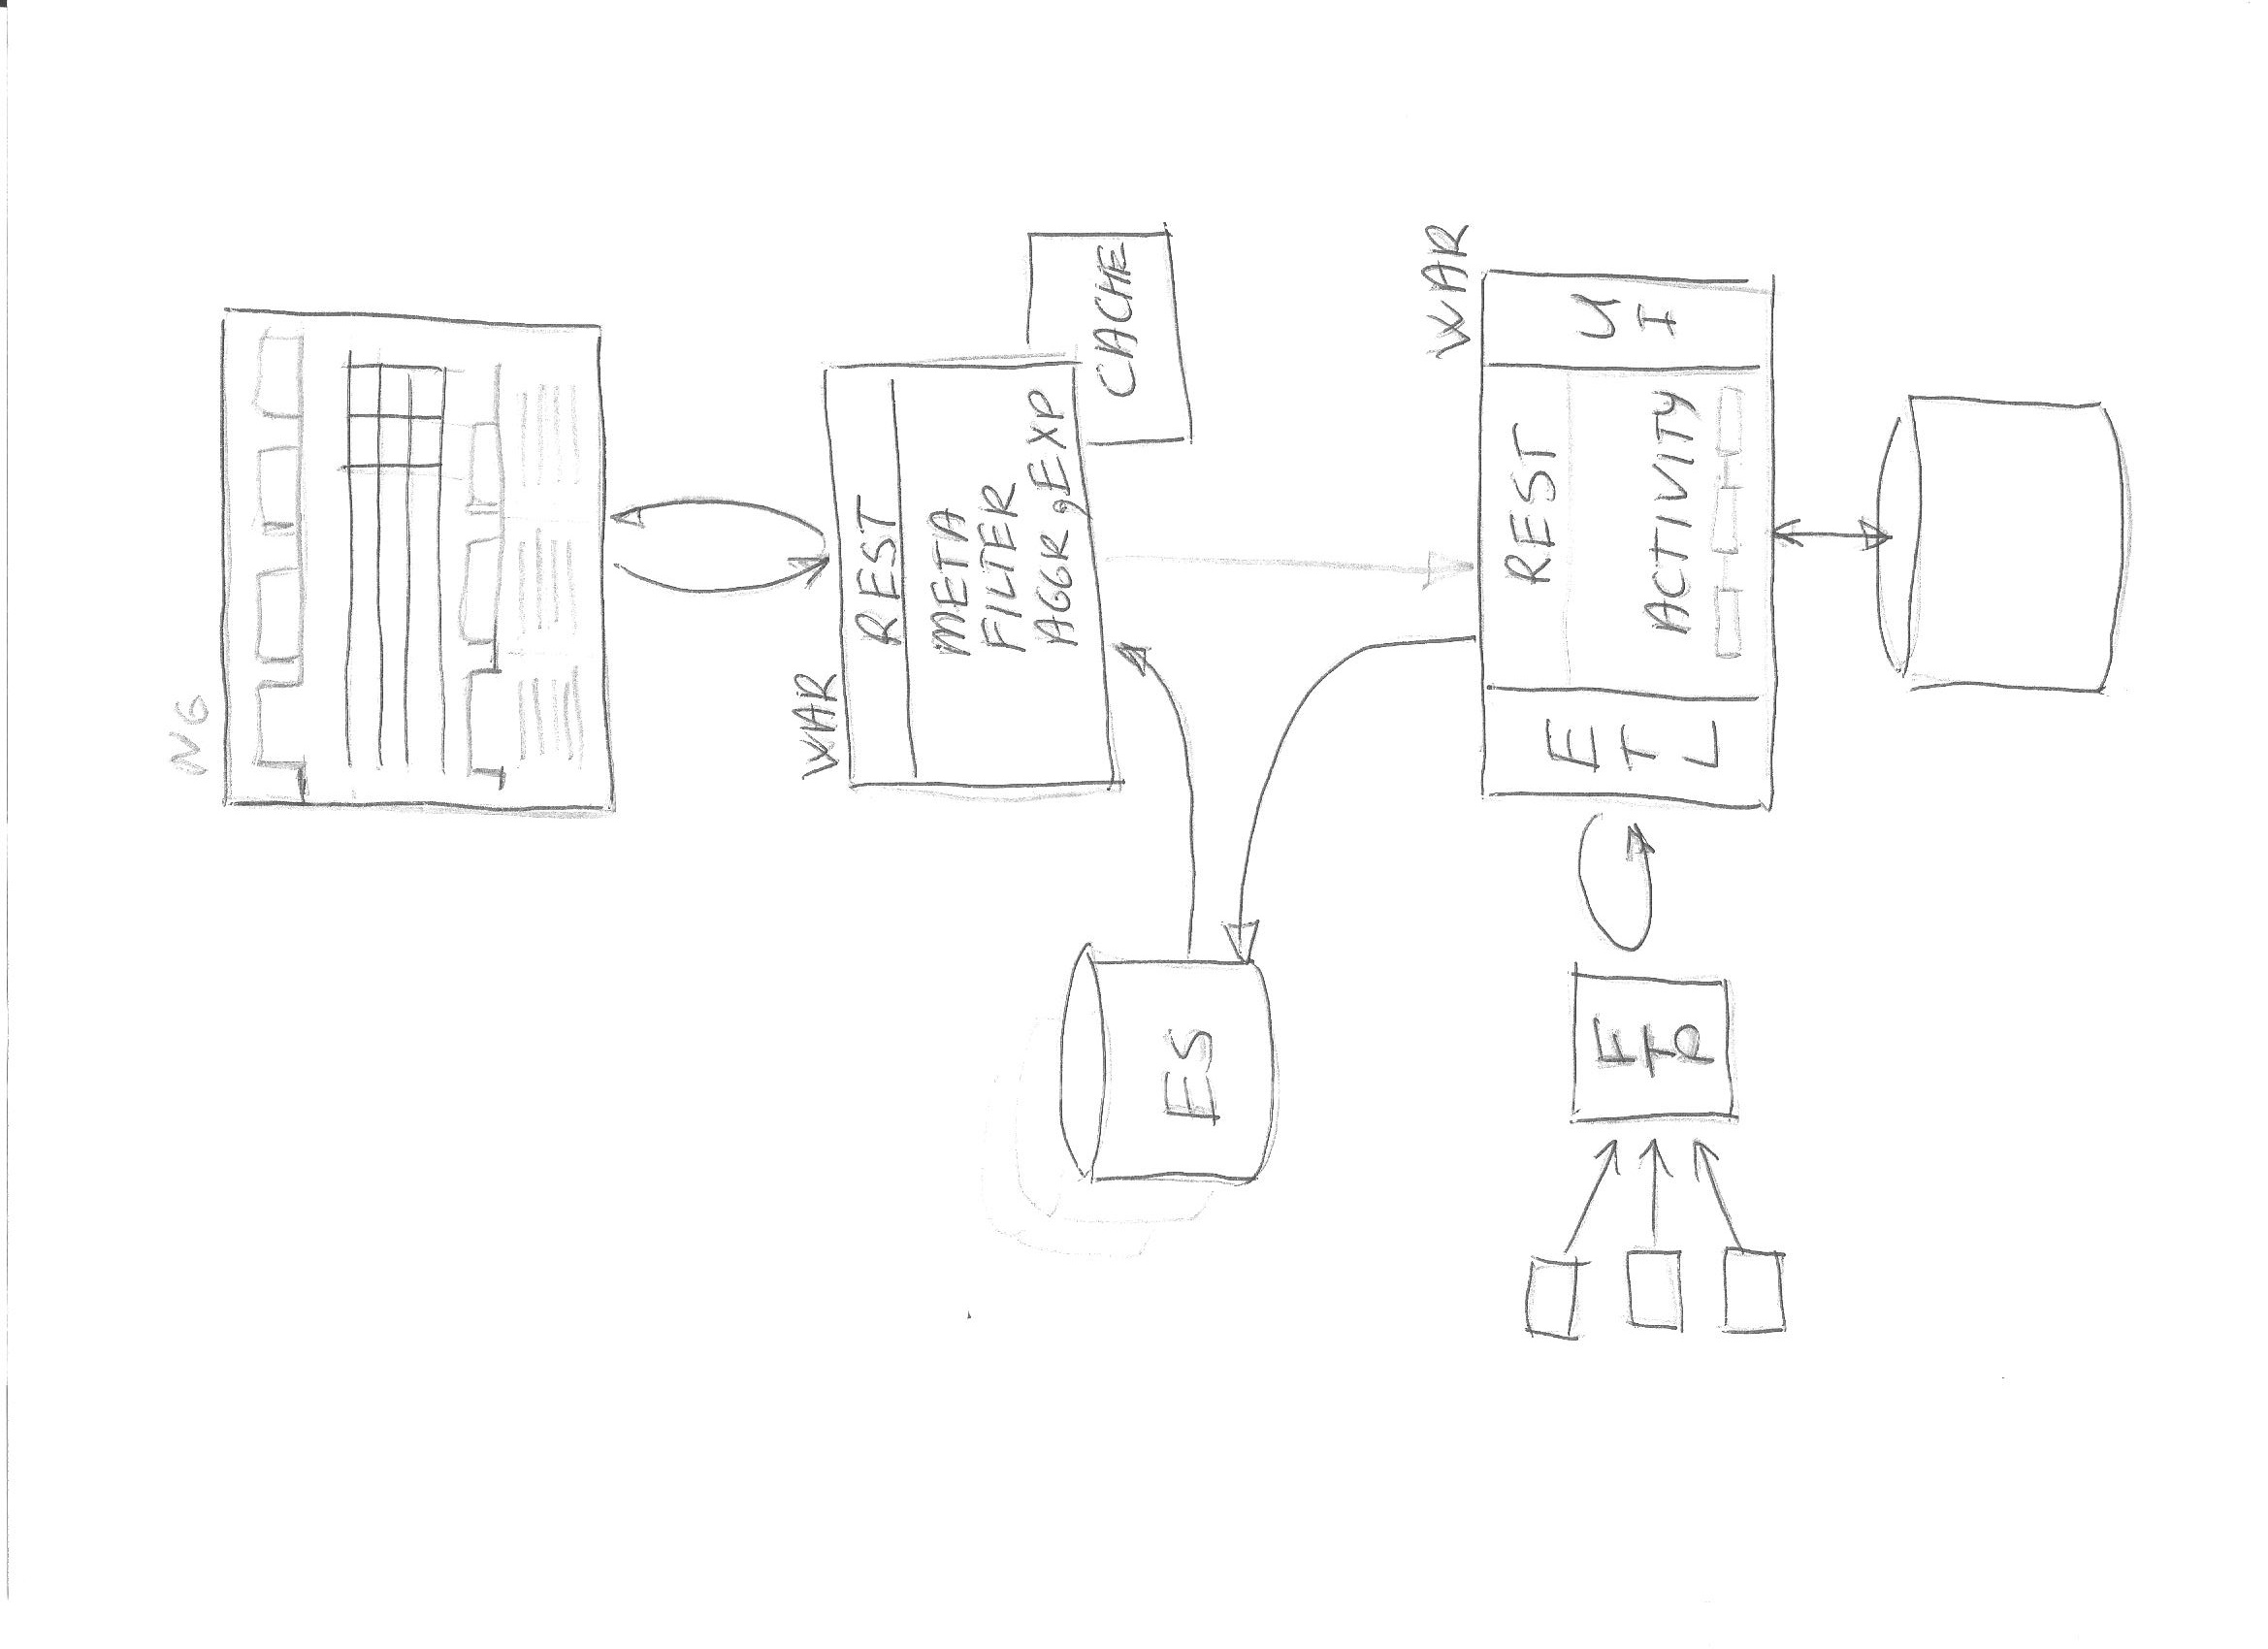 NG
WAR
REST
META
FILTER
AGGR, EXP
CACHE
ES
WAR
REST
ACTIVITY
E
T
L
U
I
F
T
P